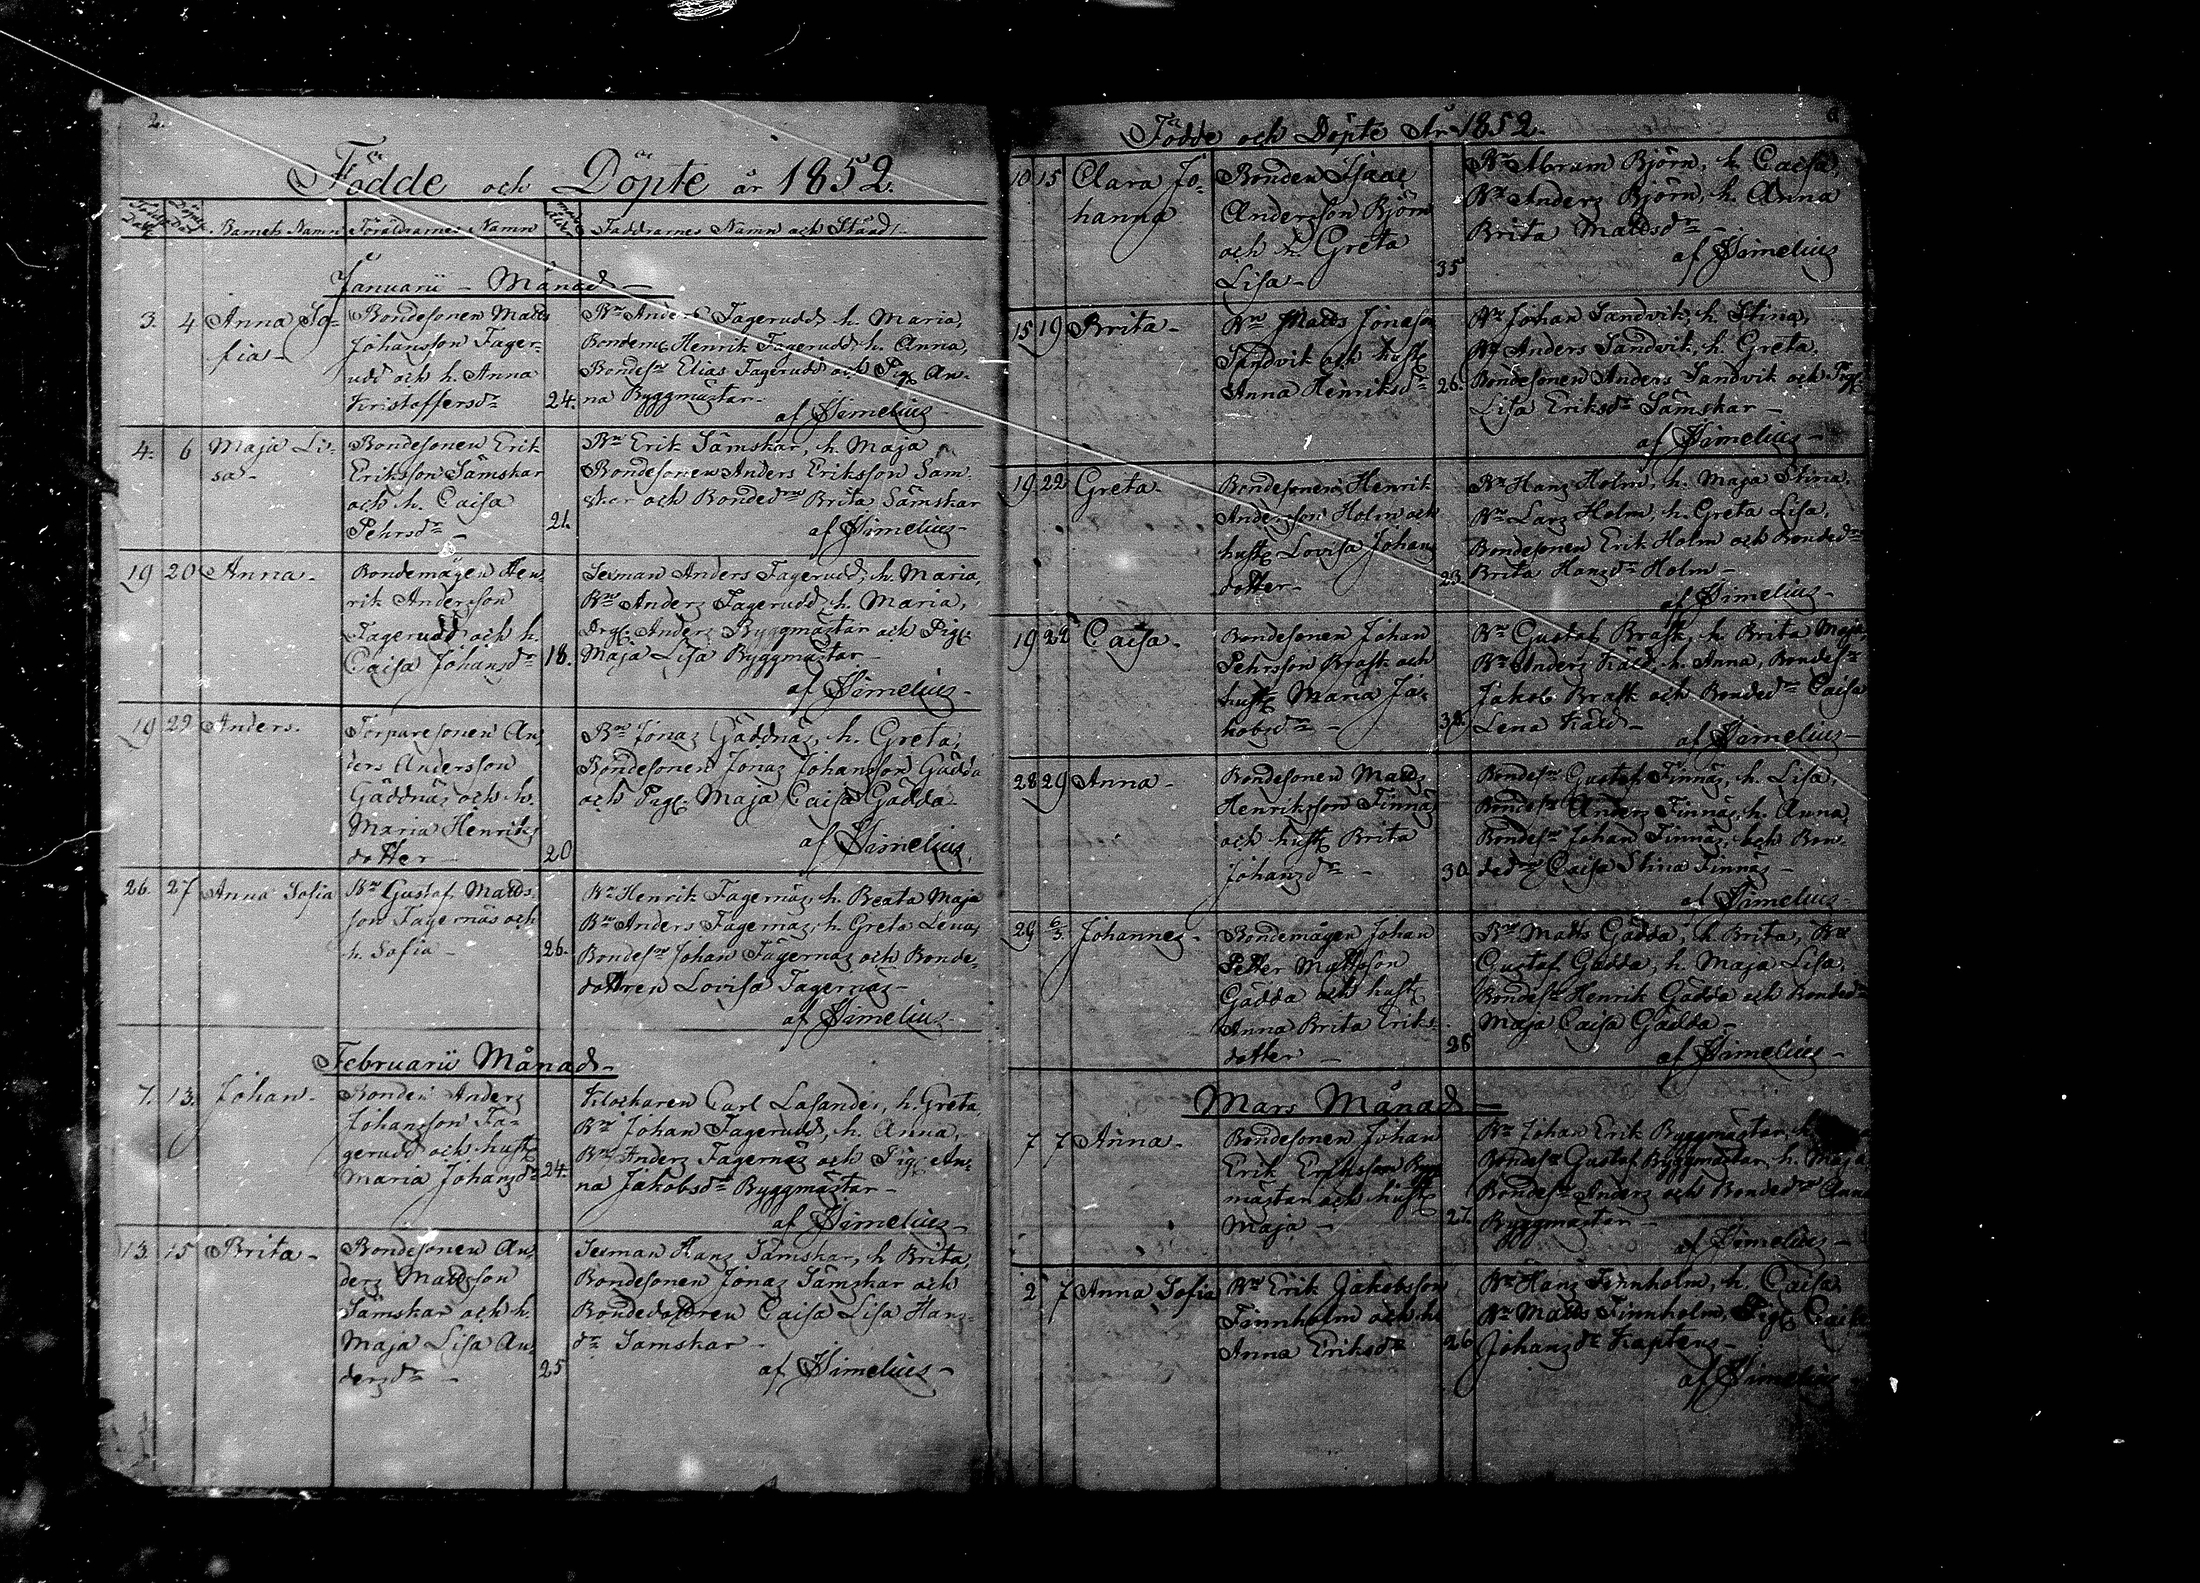 2.
Födde och Döpte år 1852.
Födelse dag Döpelse dag Barnets Namn Föräldrarnes Namn Faddrarnes Namn och Stånd
Januarii Månad
3. 4 Anna So-
fia
Bondesonen Matts
Johansson Fager-
udd och h. Anna
Kristoffersdr
24.
Bn Anders Fagerudd, h. Maria,
Bonden Henrik Fagerudd, h. Anna,
Bondesn Elias Fagerudd och Pig. An-
na Byggmästar
af Simelius
4. 6 Maja Li-
sa
Bondesonen Erik
Eriksson Sämskar
och h. Caisa
Pehrsdr
21.
Bn Erik Sämskar, h. Maja
Bondesonen Anders Eriksson Säm-
skar och Bondedn Brita Sämskar
af Simelius
19 20 Anna
Bondemågen Hen-
rik Andersson
Fagerudd och h.
Caisa Johansdr
18.
Sexman Anders Fagerudd, h. Maria,
Bn Anders Fagerudd, h. Maria,
Drg. Anders Byggmästar och Pig.
Maja Lisa Byggmästar
af Simelius
19 29 Anders.
Torparesonen An-
ders Andersson
Gäddnäs och h.
Maria Henriks
dotter
20
Bn Jonas Gäddnäs, h. Greta,
Bondesonen Jonas Johansson Gädda
och Pig. Maja Caisa Gädda
af Simelius
26. 27 Anna Sofia
Bn Gustaf Matts-
son Fagernäs och
h. Sofia
26.
Bn Henrik Fagernäs, h. Beata Maja
Bn Anders Fagernäs, h. Greta Lena,
Bondesn Johan Fagernäs och Bonde-
dottren Lovisa Fagernäs
af Simelius
Februarii Månad
7. 13. Johan
Bonden Anders
Johansson Fa-
gerudd och hust.
Maria Johansdr
24.
Klockaren Carl Lasander, h. Greta,
Bn Johan Fagerudd, h. Anna,
Bn Anders Fagernäs och Pig. An-
na Jakobsdr Byggmästar
af Simelius
13. 15 Brita
Bondesonen An-
ders Mattsson
Sämskar och h.
Maja Lisa An-
dersdr
25
Sexman Hans Sämskar, h. Brita,
Bondesonen Jonas Sämskar och
Bondedottren Caisa Lisa Hans-
dr Sämskar
af Simelius
Födde och Döpte År 1852.
10 15 Clara Jo-
hanna
Bonden Isaac
Andersson Björn
och h. Greta
Lisa
35
Bn Abram Björn, h. Caisa,
Bn Anders Björn, h. Anna
Brita Mattsdr
af Simelius
15 19 Brita
Bn Matts Jonasson
Sandvik och hust.
Anna Henriksdr
26.
Bn Johan Sandvik, h. Stina,
Bn Anders Sandvik, h. Greta,
Bondesonen Anders Sandvik och Pig.
Lisa Eriksdr Sämskar
af Simelius
19 22 Greta
Bondesonen Henrik
Andersson Holm och
hust. Lovisa Johans
dotter
23
Bn Hans Holm, h. Maja Stina,
Bn Lars Holm, h. Greta Lisa,
Bondesonen Erik Holm och Bondedr
Brita Hansdr Holm
af Simelius
19 22 Caisa
Bondesonen Johan
Pehrsson Brask och
hust. Maria Ja-
kobsdr
Bn Gustaf Brask, h. Brita Maja,
Bn Anders Käld, h. Anna, Bondesn
Jakob Brask och Bondedr Caisa
Lena Käld
af Simelius
28 29 Anna
Bondesonen Matts
Henriksson Finnäs
och hust. Brita
Johansdr
30
Bondesn Gustaf Finnäs, h. Lisa,
Bondesn Anders Finnäs, h. Anna,
Bondesn Johan Finnäs, och Bon-
dedr Caisa Stina Finnäs
af Simelius
29 6/3. Johannes
Bondemågen Johan
Petter Mattsson
Gädda och hust.
Anna Brita Eriks
dotter
26
Bn Matts Gädda, h. Brita, Bn
Gustaf Gädda, h. Maja Lisa,
Bondesn Henrik Gädda och Bondedr
Maja Caisa Gädda
af Simelius
Mars Månad
7 7 Anna
Bondesonen Johan
Erik Eriksson Bygg-
mästar och hust.
Maja
27.
Bn Johan Erik Byggmästar, h.
Bondesn Gustaf Byggmästar, h. Maja
Bondesn Anders och Bondedr Anna
Byggmästar
af Simelius
2 7 Anna Sofia
Bn Erik Jakobsson
Finnholm och h.
Anna Eriksdr
26
Bn Hans Finnholm, h. Caisa,
Bn Matts Finnholm, Pig. Caisa
Johansdr Kaptens
af Simelius